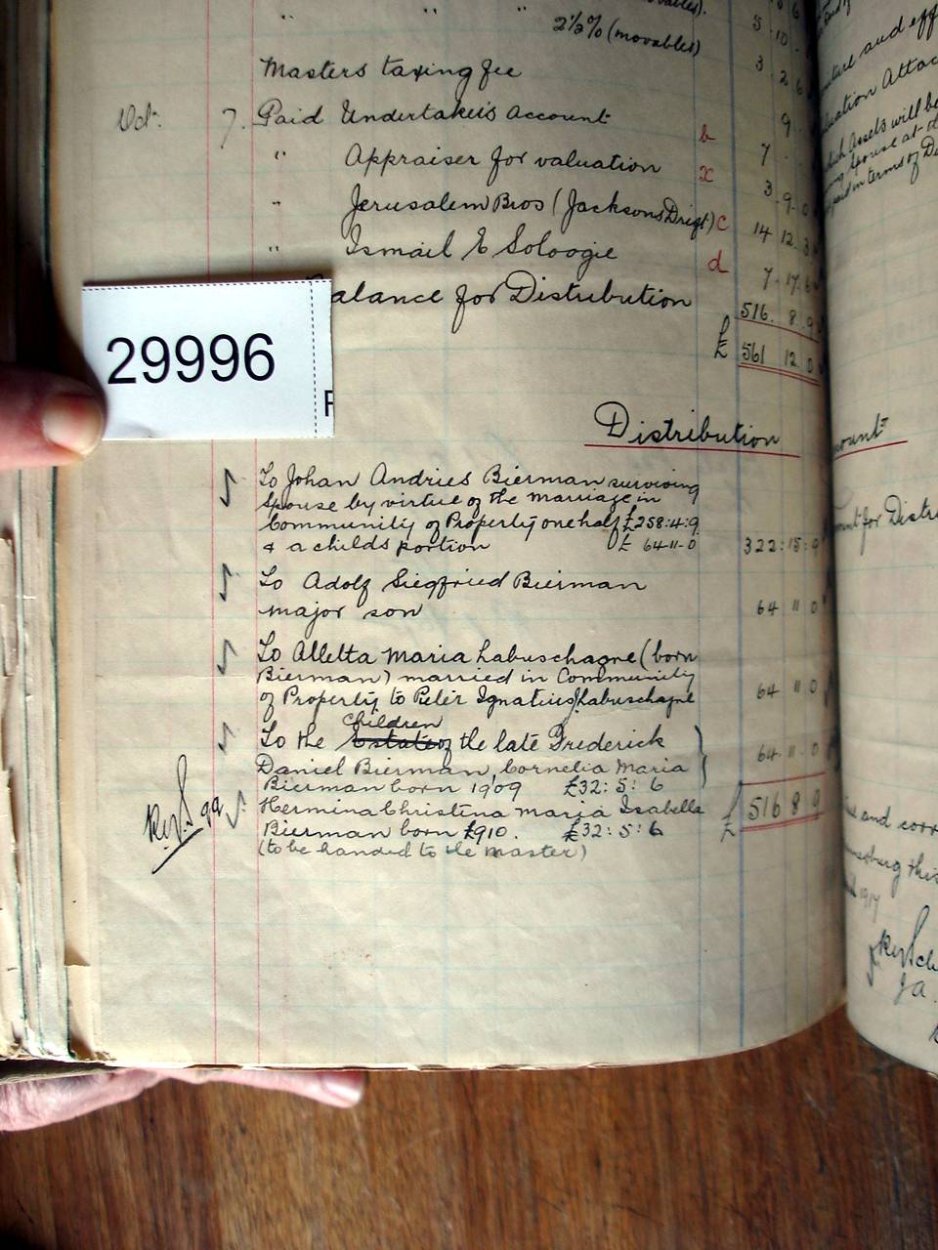 2½% (movables) 5 10
Masters taxing fee 3 2 6
Oct. 7. Paid Undertakers Account b 9
" Appraiser for valuation x 7
" Jerusalem Bros (Jacksons Drift) c 3 9 0
" Ismail E Soloogie d 14 12
7 17 6
alance for Distribution 516 8 9
£ 561 12 0
29996
Distribution
To Johan Andries Bierman surviving
spouse by virtue of the marriage in
Community of Property one half £258:4:9
& a childs portion £ 64-11-0 322:15:9
To Adolf Siegfried Bierman
major son 64 11 0
To Alletta Maria Labuschagne (born
Bierman) married in Community
of Property to Pieter Ignatius Labuschagne 64 11 0
Children
To the Estate of the late Frederick
Daniel Bierman, Cornelia Maria 64-11-0
Bierman born 1909 £32:5:6
Hermina Christina Maria Isabella
Bierman born 1910. £32:5:6 £ 516 8 9
(to be handed to the Master)